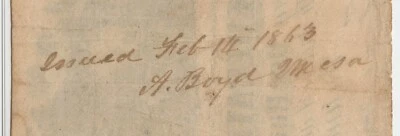 Issued Feb 14 1863
A. Boyd Mesa